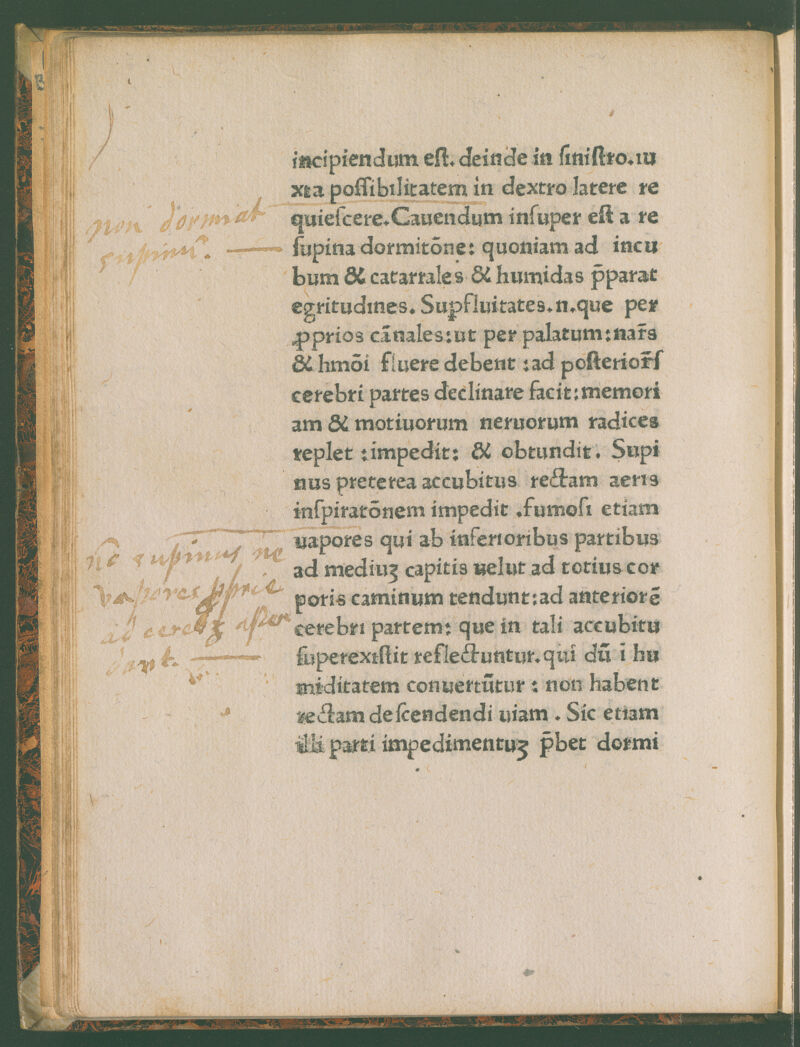 incipiendum eſt. deinde in ſiniſtro.iu
xta poſſibilitatem in dextro latere re
quieſcere.Cauendum inſuper eſt a re
ſupina dormitōne: quoniam ad incu
bum & catarrales & humidas p̄parat
egritudines. Supfluitates.n.que per
ꝓprios cānales:ut per palatum:nar̄s
& hmōi fluere debent :ad poſterior̄ſ
cerebri partes declinare facit:memori
am & motiuorum neruorum radices
replet :impedit: & obtundit. Supi
nus preterea accubitus rectam aeris
inſpiratōnem impedit .fumoſi etiam
uapores qui ab inferioribus partibus
ad mediuʒ capitis uelut ad totius cor
poris caminum tendunt:ad anteriorē
cerebri partem: que in tali accubitu
ſuperexiſtit reflectuntur.qui dū ī hu
miditatem conuertūtur : non habent
rectam deſcendendi uiam . Sic etiam
illi parti impedimentuʒ p̄bet dormi
non dormiat
supinus.
nō supinus ne
vapores
ad cerebʒ
dant.